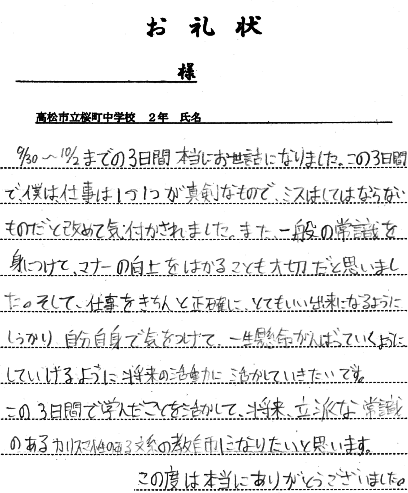 お礼状
様
高松市立桜町中学校 2年 氏名
9/30〜10/2までの3日間本当にお世話になりました。この3日間
で僕は仕事は1つ1つが真剣なもので、ミスはしてはならない
ものだと改めて気付かされました。また、一般の常識を
身につけて、マナーの向上をはかることも大切だと思いまし
た。そして、仕事をきちんと正確に、とてもいい出来になるように
しっかり自分自身で気をつけて、一生懸命がんばっていくように
していけるように将来の活動に活かしていきたいです。
この3日間で学んだことを活かして、将来、立派な常識
のあるカリスマ性のある文系の教師になりたいと思います。
この度は本当にありがとうございました。